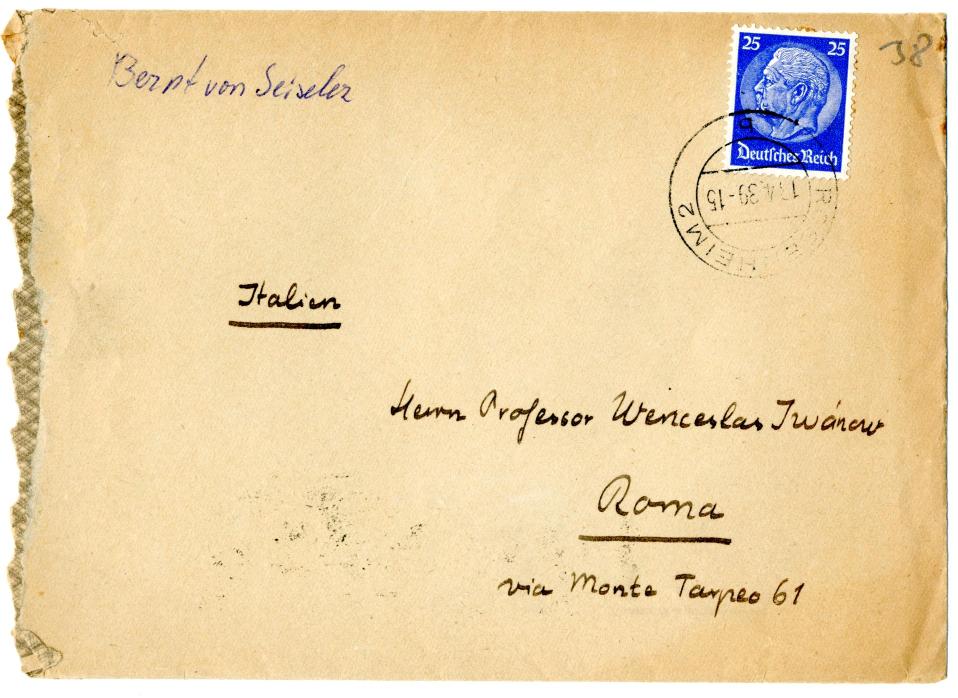 38
Bernt von Heiseler
25 25
Deutsches Reich
ROSENHEIM 2
4.39-15
Italien
Herrn Professor Wenceslas Iwánow
Roma
via Monte Tarpeo 61